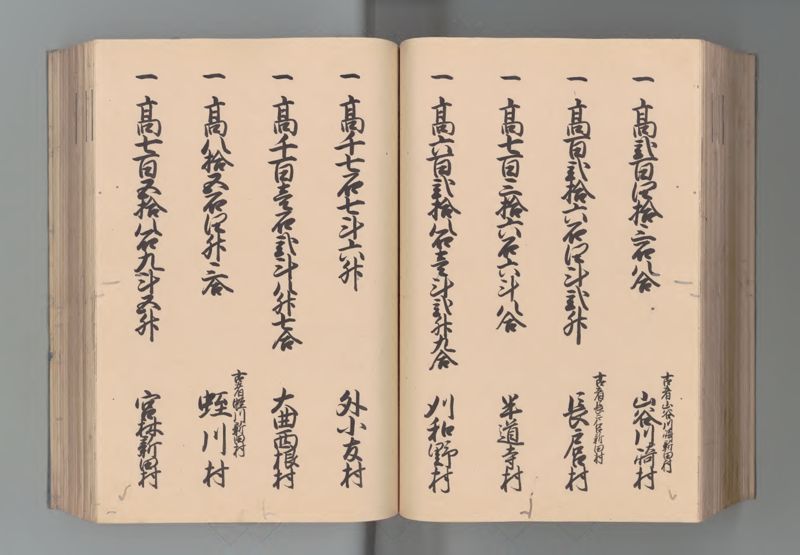 一 高弐百四拾三石八合
古者山谷川崎新田村
山谷川崎村
一 高百弐拾六石四斗弐升
古者長戸呂新田村
長戸呂村
一 高七百三拾六石六斗八合
半道寺村
一 高六百弐拾八石壱斗弐升九合
刈和野村
一 高千七石七斗六升
外小友村
一 高千百壱石弐斗八升七合
大曲西根村
一 高八拾五石四升三合
古者蛭川新田村
蛭川村
一 高七百五拾八石九斗五升
宮林新田村